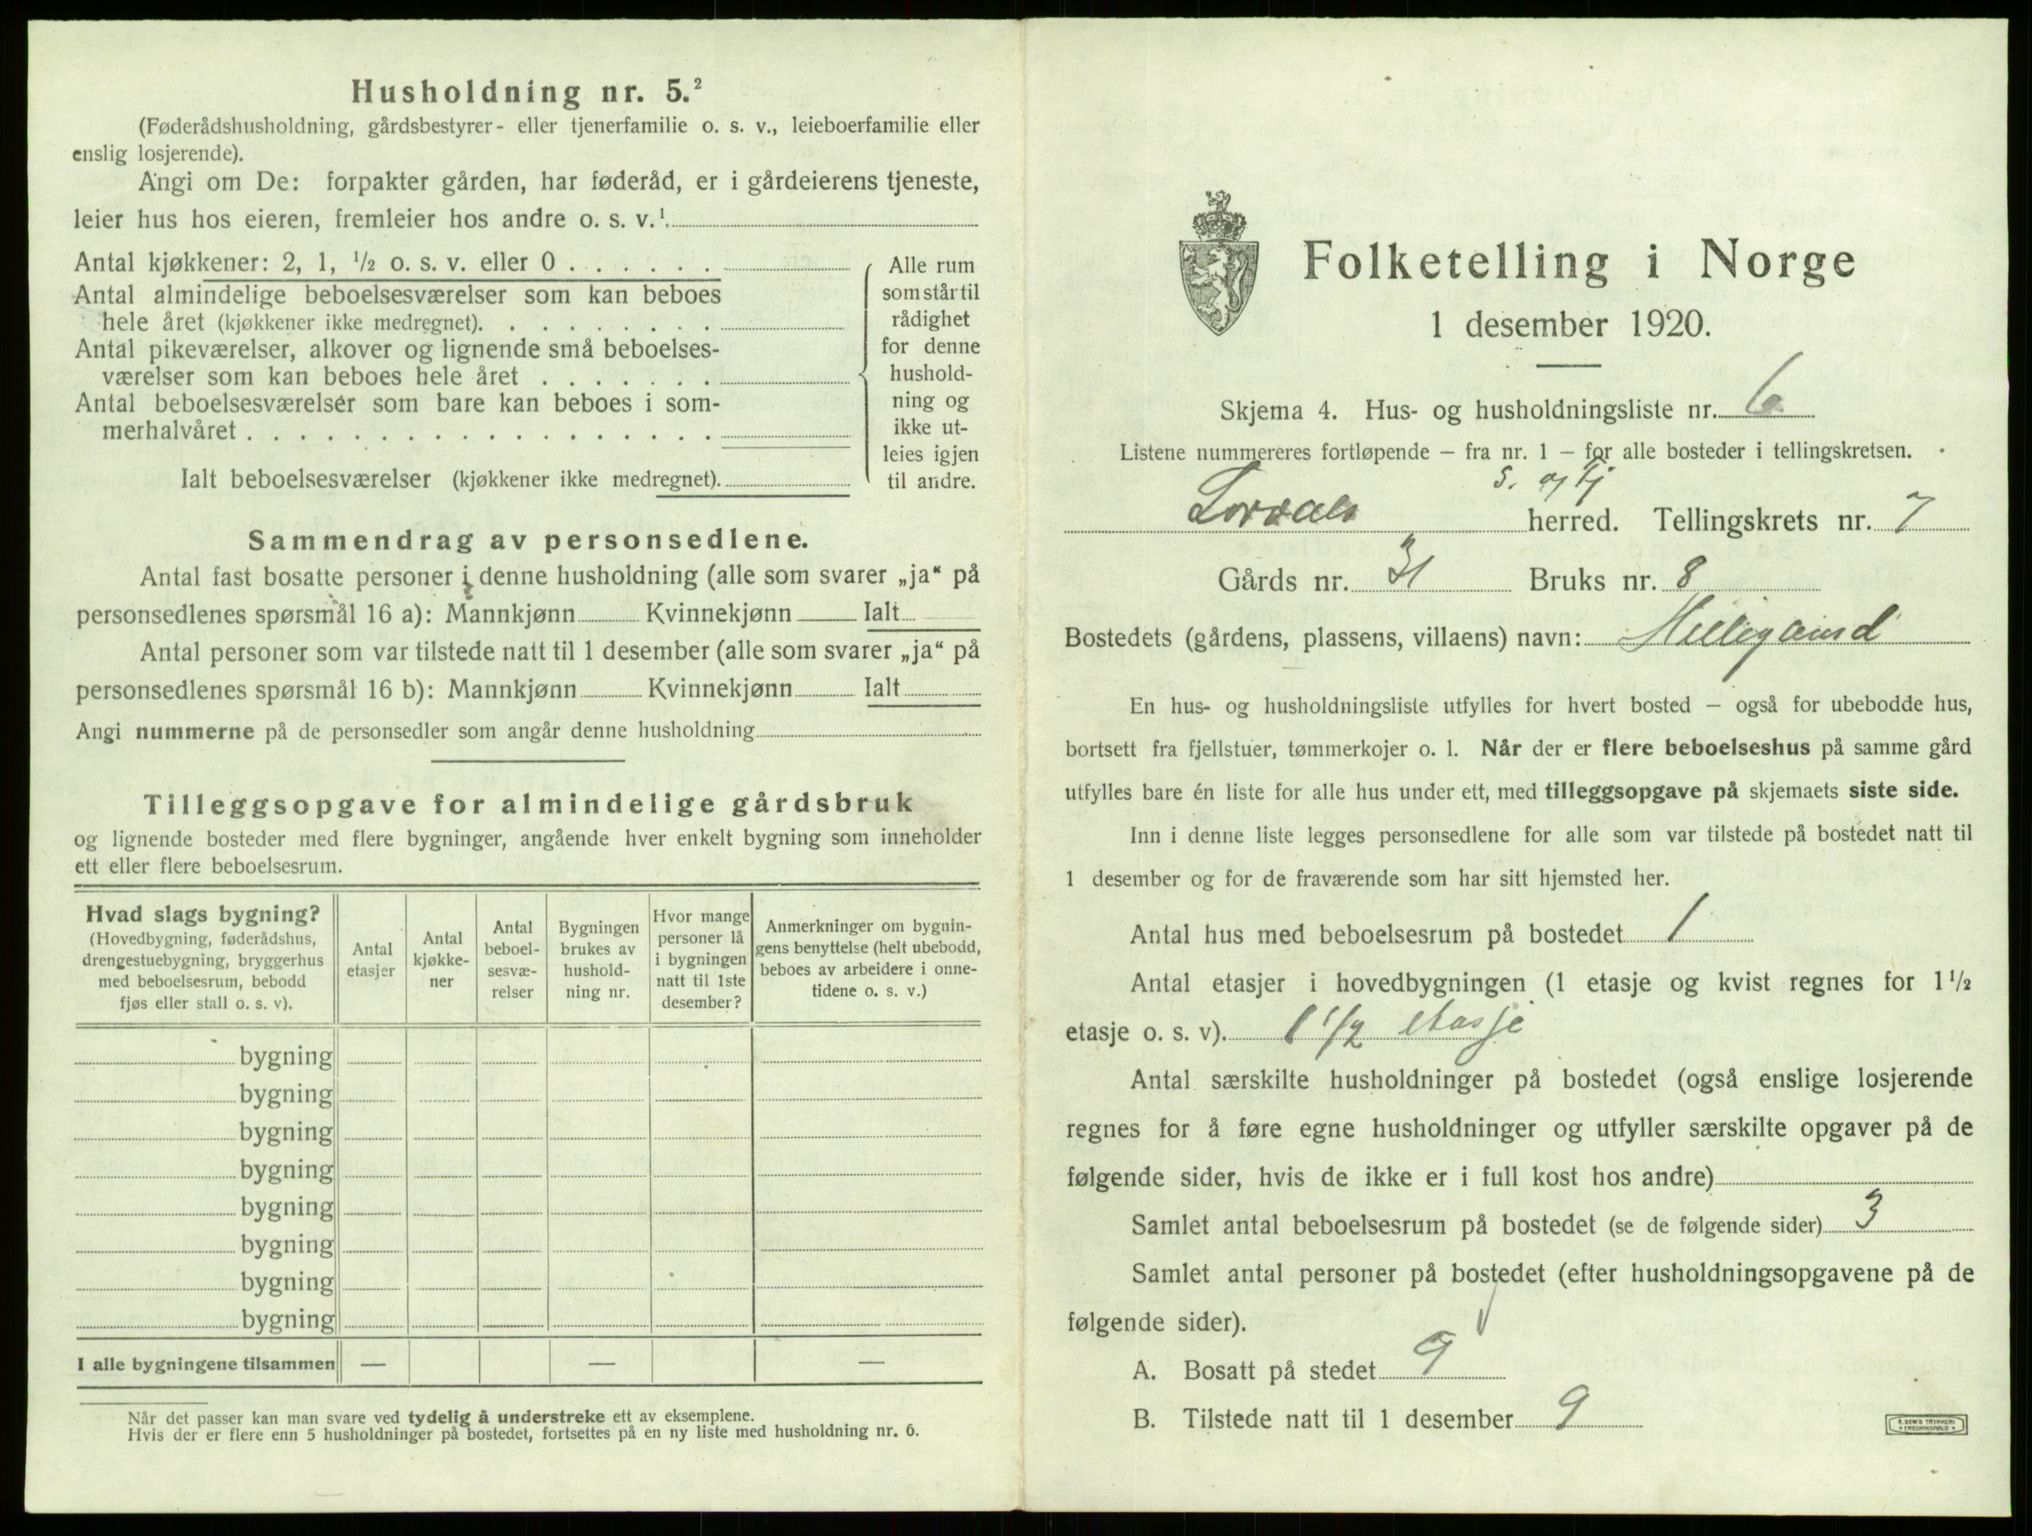 Husholdning nr. 5.²
(Føderådshusholdning, gårdsbestyrer- eller tjenerfamilie o. s. v., leieboerfamilie eller
enslig losjerende).
Angi om De: forpakter gården, har føderåd, er i gårdeierens tjeneste,
leier hus hos eieren, fremleier hos andre o. s. v.¹
Antal kjøkkener: 2, 1, ½ o. s. v. eller 0 . . . . . .
Antal almindelige beboelsesværelser som kan beboes
hele året (kjøkkener ikke medregnet). . . . . . . . .
Antal pikeværelser, alkover og lignende små beboelses-
værelser som kan beboes hele året . . . . . . .
Antal beboelsesværelser som bare kan beboes i som-
merhalvåret . . . . . . . . . . . . . . . . .
Ialt beboelsesværelser (kjøkkener ikke medregnet).
Alle rum
som står til
rådighet
for denne
hushold-
ning og
ikke ut-
leies igjen
til andre.
Sammendrag av personsedlene.
Antal fast bosatte personer i denne husholdning (alle som svarer „ja“ på
personsedlenes spørsmål 16 a): Mannkjønn Kvinnekjønn Ialt
Antal personer som var tilstede natt til 1 desember (alle som svarer „ja“ på
personsedlenes spørsmål 16 b): Mannkjønn Kvinnekjønn Ialt
Angi nummerne på de personsedler som angår denne husholdning
Tilleggsopgave for almindelige gårdsbruk
og lignende bosteder med flere bygninger, angående hver enkelt bygning som inneholder
ett eller flere beboelsesrum.
Hvad slags bygning?
(Hovedbygning, føderådshus,
drengestuebygning, bryggerhus
med beboelsesrum, bebodd
fjøs eller stall o. s. v).
Antal
etasjer
Antal
kjøkke-
ner
Antal
beboel-
sesvæ-
relser
Bygningen
brukes av
hushold-
ning nr.
Hvor mange
personer lå
i bygningen
natt til 1ste
desember?
Anmerkninger om bygnin-
gens benyttelse (helt ubebodd,
beboes av arbeidere i onne-
tidene o. s. v.)
bygning
bygning
bygning
bygning
bygning
bygning
bygning
bygning
I alle bygningene tilsammen — — —
Når det passer kan man svare ved tydelig å understreke ett av eksemplene.
Hvis der er flere enn 5 husholdninger på bostedet, fortsettes på en ny liste med husholdning nr. 6.
Folketelling i Norge
1 desember 1920.
Skjema 4. Hus- og husholdningsliste nr. 6
Listene nummereres fortløpende – fra nr. 1 – for alle bosteder i tellingskretsen.
S. og Fj
herred. Tellingskrets nr. 7
Gårds nr. 31 Bruks nr. 8
Bostedets (gårdens, plassens, villaens) navn:
En hus- og husholdningsliste utfylles for hvert bosted – også for ubebodde hus,
bortsett fra fjellstuer, tømmerkojer o. l. Når der er flere beboelseshus på samme gård
utfylles bare én liste for alle hus under ett, med tilleggsopgave på skjemaets siste side.
Inn i denne liste legges personsedlene for alle som var tilstede på bostedet natt til
1 desember og for de fraværende som har sitt hjemsted her.
Antal hus med beboelsesrum på bostedet 1
Antal etasjer i hovedbygningen (1 etasje og kvist regnes for 1½
etasje o. s. v). 1 1/2 etasje
Antal særskilte husholdninger på bostedet (også enslige losjerende
regnes for å føre egne husholdninger og utfyller særskilte opgaver på de
følgende sider, hvis de ikke er i full kost hos andre)
Samlet antal beboelsesrum på bostedet (se de følgende sider) 3
Samlet antal personer på bostedet (efter husholdningsopgavene på de
følgende sider).
A. Bosatt på stedet 9
B. Tilstede natt til 1 desember 9